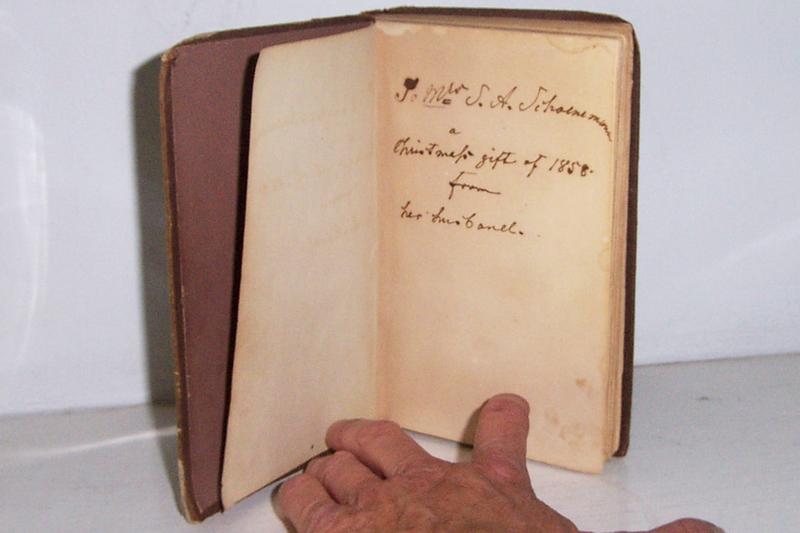 To Mrs S. A. Schoeneman
a
Christmass gift of 1858.
from
her husband.